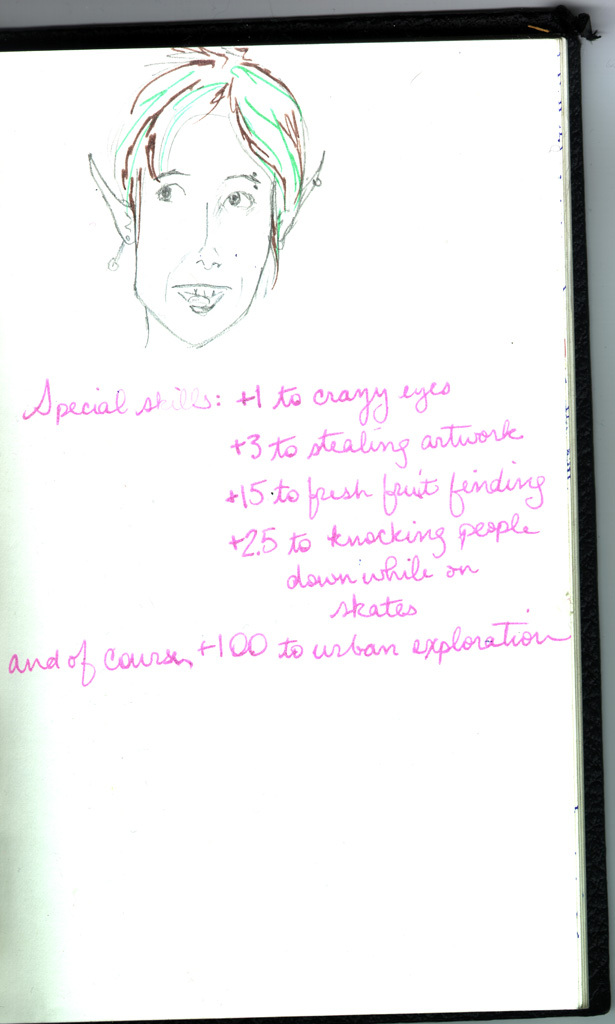 Special skills: +1 to crazy eyes
+3 to stealing artwork
+15 to fresh fruit finding
+2.5 to knocking people
down while on
skates
and of course, +100 to urban exploration